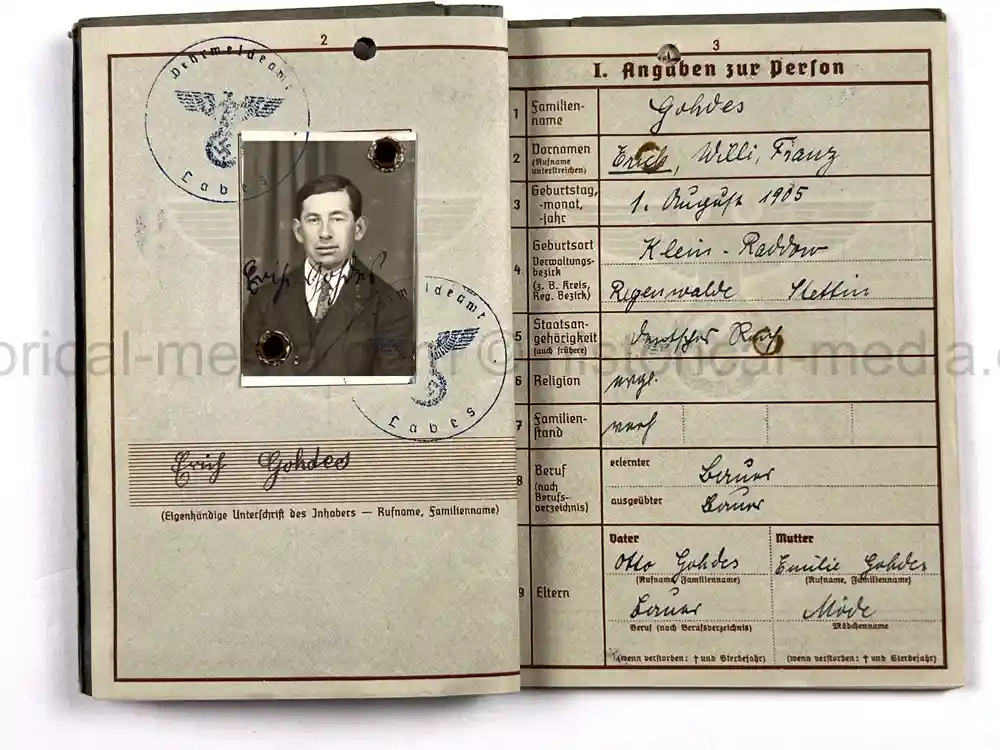 2
Wehrmeldeamt
Labes
Erich Gohdes
Wehrmeldeamt
Labes
Erich Gohdes
(Eigenhändige Unterschrift des Inhabers — Rufname, Familienname)
3
I. Angaben zur Person
1 Familien-
name
Gohdes
2 Vornamen
(Rufname
unterstreichen)
Erich, Willi, Franz
3 Geburtstag,
-monat,
-jahr
1. August 1905
4 Geburtsort
Verwaltungs-
bezirk
(z. B. Kreis,
Reg. Bezirk)
Klein-Raddow
Regenwalde Stettin
5 Staatsan-
gehörigkeit
(auch frühere)
deutsches Reich
6 Religion
evgl.
7 Familien-
stand
verh
8 Beruf
(nach
Berufs-
verzeichnis)
erlernter
Bauer
ausgeübter
Bauer
9 Eltern
Vater
Otto Gohdes
(Rufname, Familienname)
Bauer
Beruf (nach Berufsverzeichnis)
(wenn verstorben: † und Sterbejahr)
Mutter
Emilie Gohdes
(Rufname, Familienname)
Möde
Mädchenname
(wenn verstorben: † und Sterbejahr)
orical-med © historical-media.c